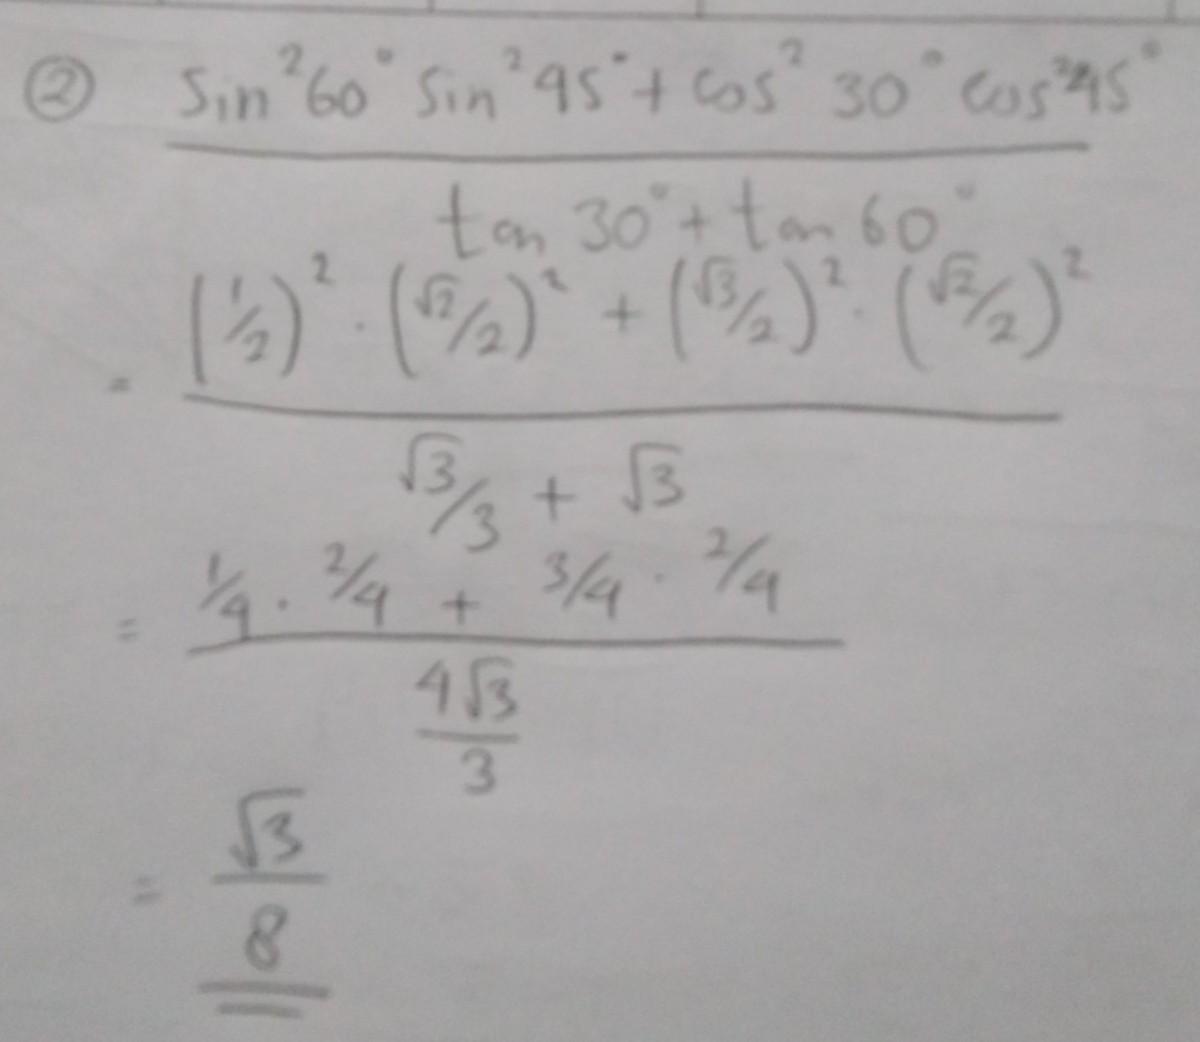 ② sin²60° sin²45° + cos²30° cos²45°
tan 30° + tan 60°
= (1/2)² · (√2/2)² + (√3/2)² · (√2/2)²
√3/3 + √3
= 1/4 · 2/4 + 3/4 · 2/4
4√3
3
= √3
8